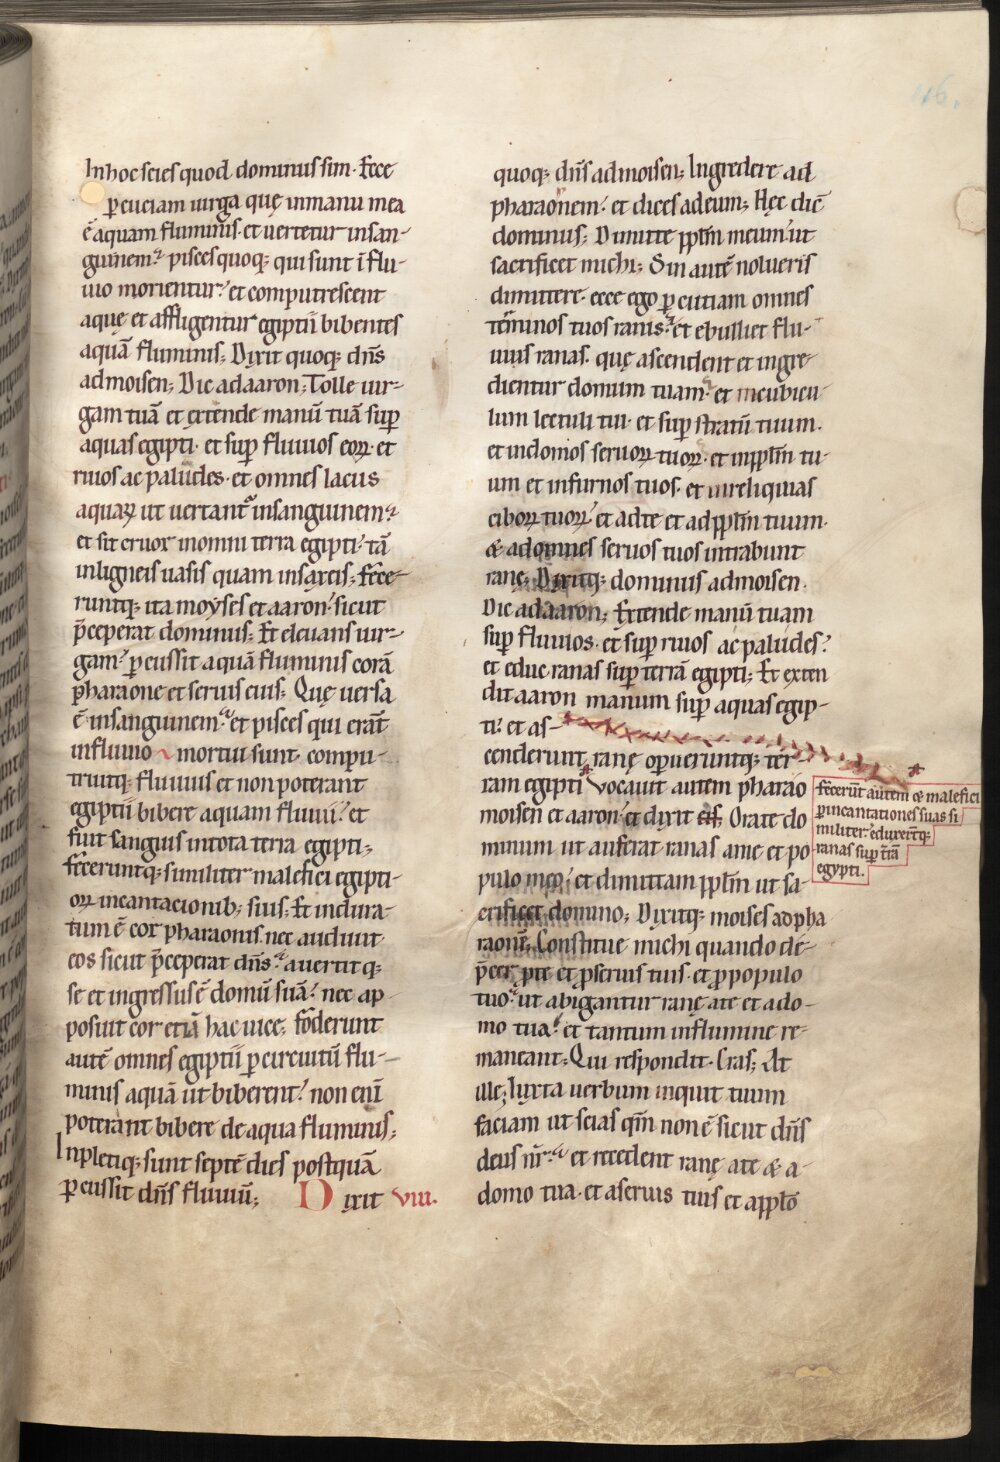 46.
In hoc scies quod dominus sim. Ecce
p̱cuciam uirga quę in manu mea
ē aquam fluminis. et uertetur in san-
guinem. pisces quoq; qui sunt ī flu-
uio morientur. et computrescent
aquę et affligentur egiptii bibentes
aquā fluminis; Dixit quoq; dn̄s
ad moisen; Dic ad aaron; Tolle uir-
gam tuā et extende manū tuā sup̱
aquas egipti. et sup̱ fluuios eoꝝ. et
riuos ac paludes. et omnes lacus
aquaꝝ ut uertant᷑ in sanguinem.
et sit cruor in omni terra egipti. tā
in ligneis uasis quam in saxeis; Fece-
runtq; ita moyses et aaron. sicut
p̄ceperat dominus; Et eleuans uir-
gam. p̱cussit aquā fluminis corā
pharaone et seruis eius; Quę uersa
ē in sanguinem. et pisces qui erāt
in fluuio mortui sunt. compu-
truitq; fluuius et non poterant
egiptii bibere aquam fluuii. et
fuit sanguis in tota terra egipti;
feceruntq; similiter malefici egipti-
oꝝ incantacionib; suis; Et indura-
tum ē cor pharaonis. nec audiuit
eos sicut p̄ceperat dn̄s. auertitq;
se et ingressus ē domū suā. nec ap-
posuit cor etiā hac uice; foderunt
autē omnes egiptii p̱ circuitū flu-
minis aquā ut biberent. non enī
poterant bibere de aqua fluminis;
Inpletiq; sunt septē dies postquā
p̱cussit dn̄s fluuiū; Dixit VIII.
quoq; dn̄s ad moisen; Ingredere ad
pharaonem. et dices ad eum; Hęc dic̄
dominus; Dimitte pp̱lm̄ meum ut
sacrificet michi; Sin autē nolueris
dimittere. ecce ego p̱cutiam omnes
tēminos tuos ranis. et ebulliet flu-
uius ranas. quę ascendent et ingre-
dientur domum tuam. et in cubicu-
lum lectuli tui. et sup̱ stratū tuum.
et in domos seruoꝝ tuoꝝ. et in pp̱lm̄ tu-
um et in furnos tuos. et in reliquias
ciboꝝ tuoꝝ. et ad te et ad pp̱lm̄ tuum.
& ad omnes seruos tuos intrabunt
ranę; Dixitq; dominus ad moisen.
Dic ad aaron; Extende manū tuam
sup̱ fluuios. et sup̱ riuos ac paludes.
et educ ranas sup̱ terrā egipti; Et exten
dit aaron manum sup̱ aquas egip-
ti. et as-
cenderunt ranę operueruntq; ter-
ram egipti Vocauit autem pharao
moisen et aaron. et dixit eis. Orate do
minum ut auferat ranas a me et po
pulo meo. et dimittam pp̱lm̄ ut sa-
crificet domino; Dixitq; moises ad pha
raonē; Constitue michi quando de-
p̄cer p̱ te et p̱ seruis tuis. et p̱ populo
tuo. ut abigantur ranę a te et a do-
mo tua. et tantum in flumine re-
maneant; Qui respondit. Cras; At
ille; Iuxta uerbum inquit tuum
faciam ut scias qm̄ non ē sicut dn̄s
deus nr̄. et recedent ranę a te & a
domo tua. et a seruis tuis et a pp̱lo
fecerūt autem & malefici
p̱ incantationes suas si
militer. eduxerūtq;
ranas sup̱ t̄rā
egypti.